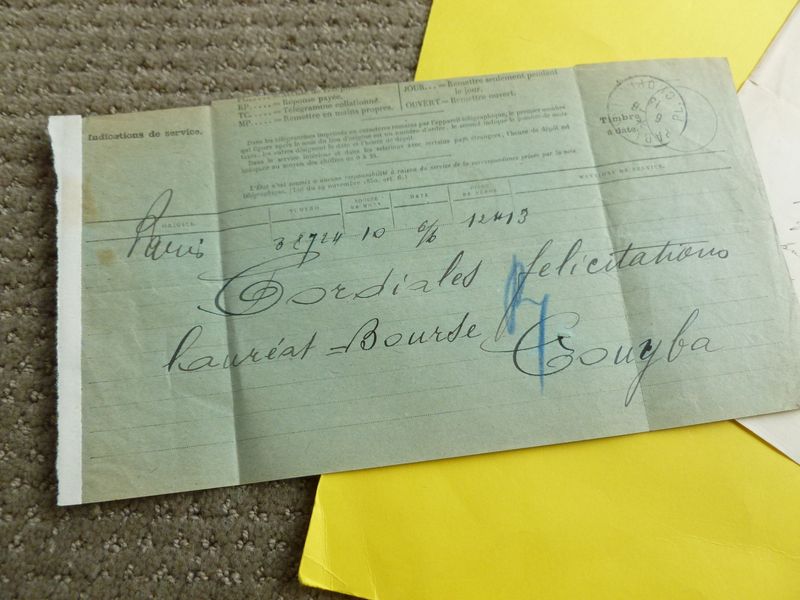 RP..... = Réponse payée.
TC..... = Télégramme collationné.
MP..... = Remettre en mains propres.
JOUR... = Remettre seulement pendant
le jour.
OUVERT = Remettre ouvert.
Indications de service.
Dans les télégrammes imprimés en caractères romains par l'appareil télégraphique, le premier nombre
qui figure après le nom du lieu d'origine est un numéro d'ordre, le second indique le nombre de mots
taxés, les autres désignent la date et l'heure de dépôt.
Dans le service intérieur et dans les relations avec certains pays étrangers, l'heure de dépôt est
indiquée au moyen des chiffres de 0 à 24.
L'État n'est soumis à aucune responsabilité à raison du service de la correspondance privée par la voie
télégraphique. (Loi du 29 novembre 1850, art. 6.)
Timbre
à date.
ORIGINE. NUMÉRO. NOMBRE DE MOTS. DATE. HEURE DE DÉPÔT. MENTIONS DE SERVICE.
Paris 38724 10 6/6 12H13
Cordiales félicitations
lauréat = Bourse Couyba